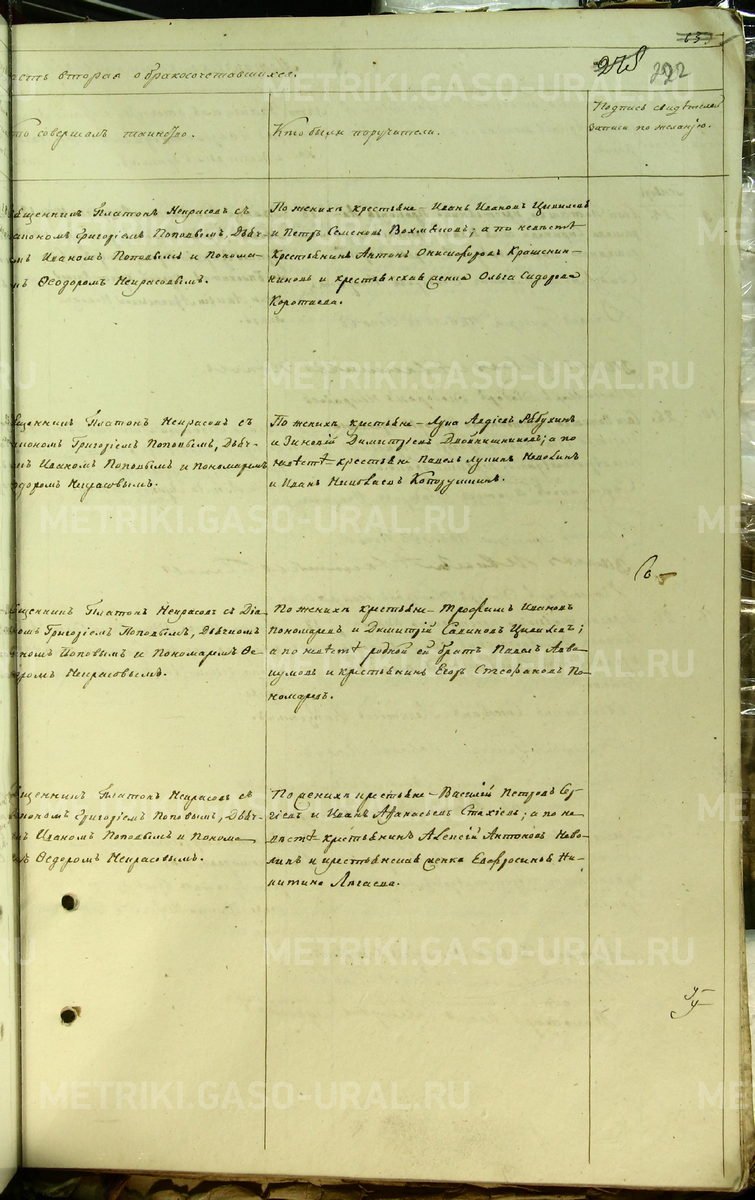 65.
278 222
асть вторая о бракосочетавшихся.
то совершалъ таинство.
Кто были поручители.
Подпись свидѣтелей
записи по желанію.
щенникъ Платонъ Некрасовъ съ
Григоріемъ Поповымъ, Дьяч-
мъ Иваномъ Поповымъ и Понома-
ъ Ѳеодоромъ Некрасовымъ.
По женихѣ крестьяне – Иванъ Ивановъ Цивилевъ
и Петръ Семеновъ; а по невѣстѣ
крестьянинъ Антонъ Онисифоровъ Крашенин-
никовъ и крестьянская Ольга Сидорова
Коротаева.
щенникъ Платонъ Некрасовъ съ
кономъ Григоріемъ Поповымъ, Дьяч-
мъ Иваномъ Поповымъ и Пономаремъ
одоромъ Некрасовымъ.
По женихѣ крестьяне – Лука Авдіевъ Рябухинъ
и Зиновій Димитріевъ Двойнишниковъ; а по
невѣстѣ крестьяне Павелъ Лукинъ Неволинъ
и Иванъ Николаевъ
щенникъ Платонъ Некрасовъ съ Діа-
номъ Григоріемъ Поповымъ, Дьячкомъ
аномъ Поповымъ и Пономаремъ Ѳе-
доромъ Некрасовымъ.
По женихѣ крестьяне – Трофимъ Ивановъ
Пономаревъ и Димитрій Савиновъ Цивилевъ;
а по невѣстѣ родной ей братъ Павелъ Авва-
кумовъ и крестьянинъ Егоръ Стефановъ По-
номаревъ.
щенникъ Платонъ Некрасовъ съ
кономъ Григоріемъ Поповымъ, Дьяч-
мъ Иваномъ Поповымъ и Понома-
мъ Ѳедоромъ Некрасовымъ.
По женихѣ крестьяне – Василій Петровъ
и Иванъ Афанасьевъ Стахіевъ; а по не-
вѣстѣ – крестьянинъ Алексій Антоновъ Нево-
линъ и крестьянская женка Евфросинья Ни-
китина
METRIKI.GASO-URAL.RU